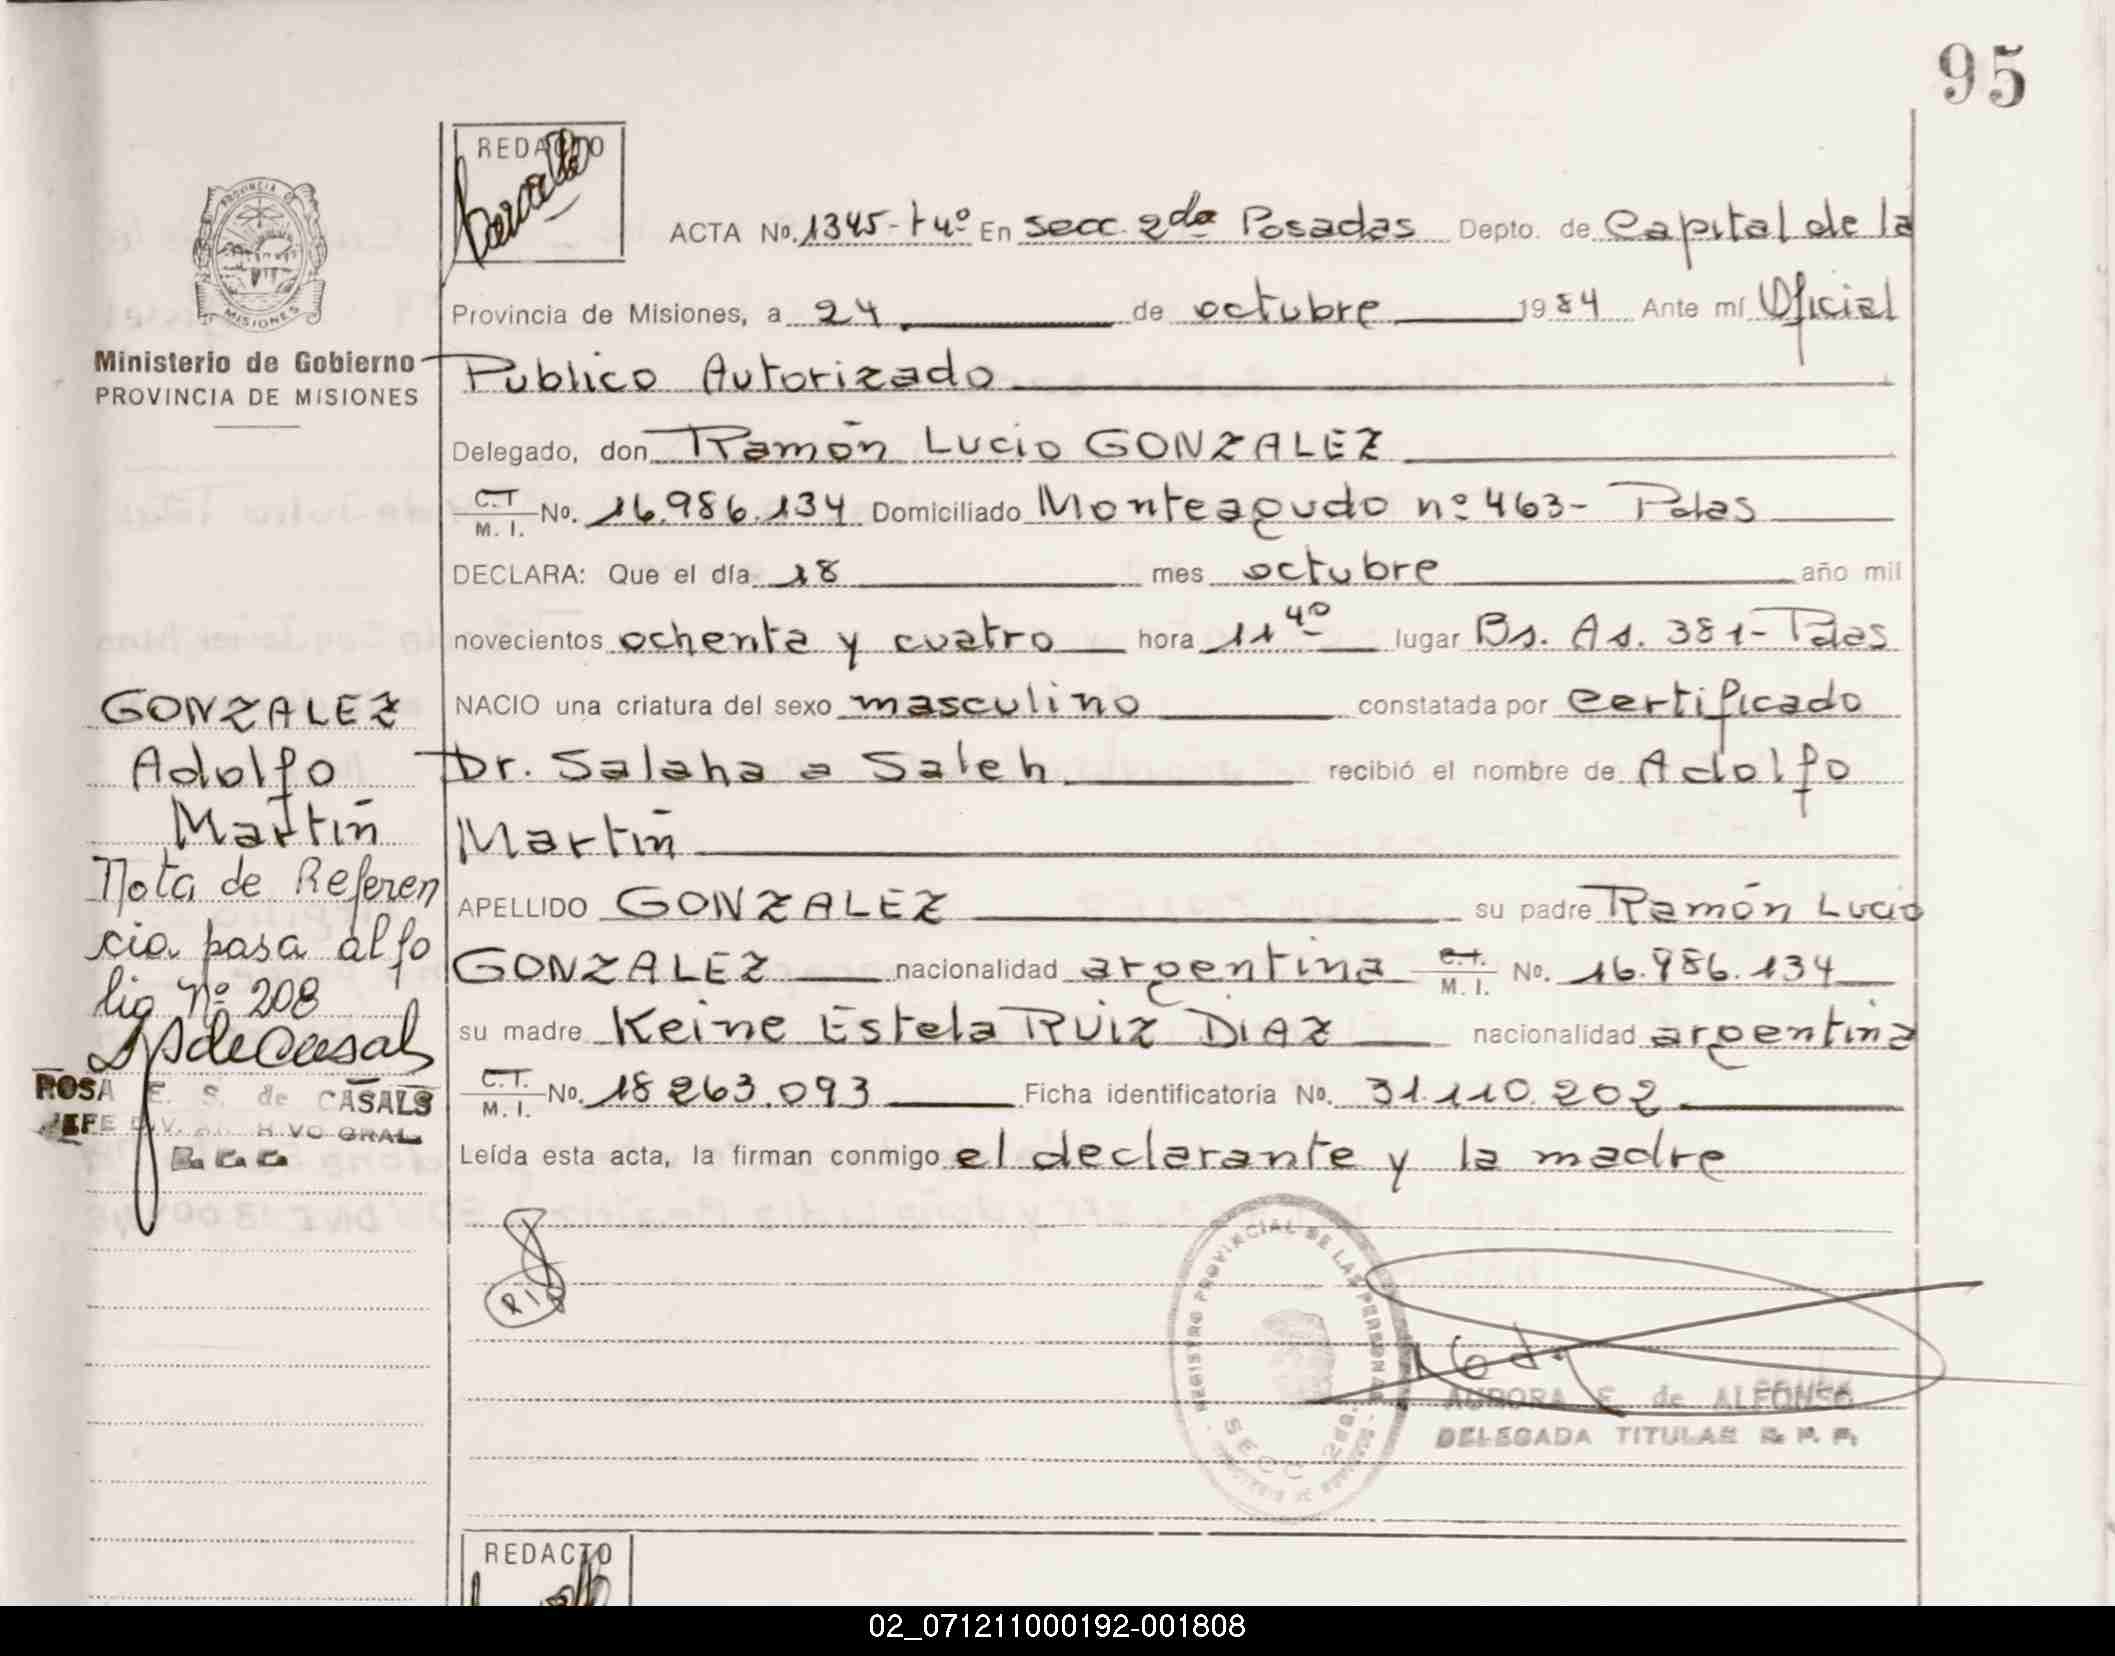 95
REDACTO
PROVINCIA DE
MISIONES
Ministerio de Gobierno
PROVINCIA DE MISIONES
ACTA No. 1345-t 4º En secc. 2da Posadas Depto. de Capital de la
Provincia de Misiones, a 24 de octubre 1984 Ante mí Oficial
Publico Autorizado
Delegado, don Ramón Lucio GONZALEZ
C.I. M. I. No. 16.986.134 Domiciliado Monteagudo nº 463- Pdas
DECLARA: Que el día 18 mes octubre año mil
novecientos ochenta y cuatro hora 11 40 lugar Bs. As. 381- Pdas
NACIO una criatura del sexo masculino constatada por certificado
Dr. Salaha a Saleh recibió el nombre de Adolfo
Martín
APELLIDO GONZALEZ su padre Ramón Lucio
GONZALEZ nacionalidad argentina C.I. M. I. No. 16.986.134
su madre Keine Estela RUIZ DIAZ nacionalidad argentina
C.I. M. I. No. 18 263.093 Ficha identificatoria No. 31.110.202
Leída esta acta, la firman conmigo el declarante y la madre
GONZALEZ
Adolfo
Martín
Nota de Referen
cia pasa al fo
lio Nº 208
ROSA E. S. de CASALS
JEFE DIV. ARCHIVO GRAL.
REGISTRO PROVINCIAL DE LAS PERSONAS
SECC 2da.
AURORA E de ALFONSO
DELEGADA TITULAR R. P. P.
REDACTO
02_071211000192-001808